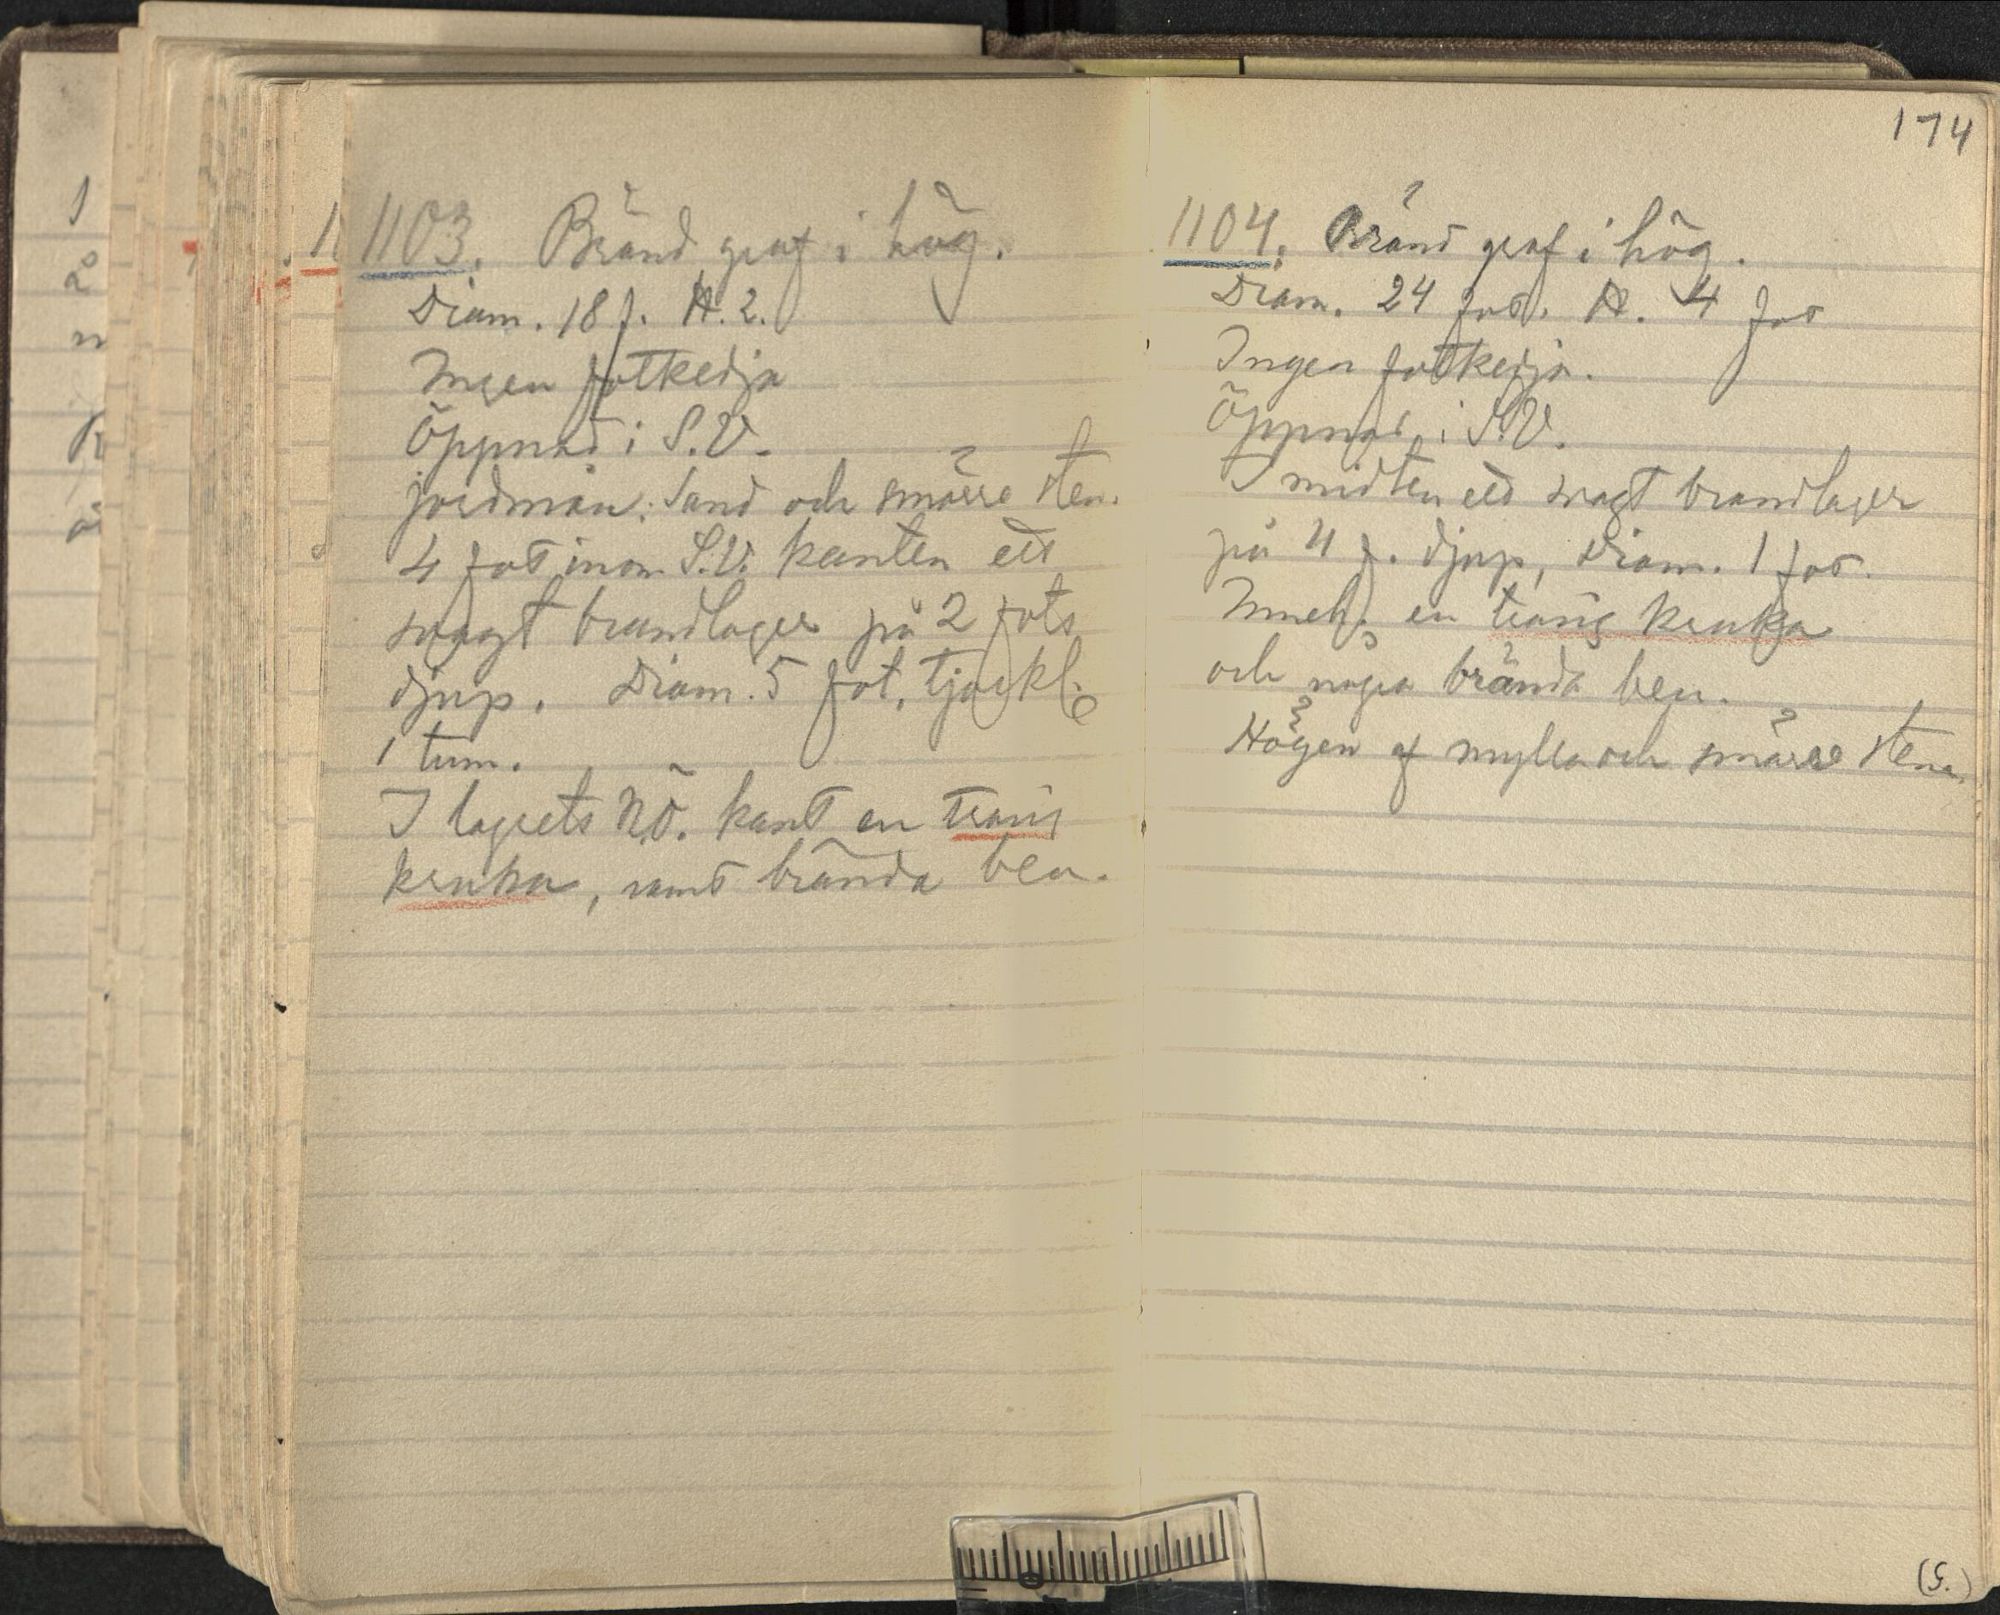 1103. Bränd graf i hög.
Diam. 18 f. H. 2.
Ingen fotkedja
Öppnad i S.V.
jordmån: Sand och smärre sten.
4 fot inom S.V. kanten ett
svagt brandlager på 2 fots
djup. Diam. 5 fot, tjockl.
1 tum.
I lagrets NÖ. kant en trasig
kruka, samt brända ben.
174
1104. Bränd graf i hög.
Diam. 24 fot. H. 4 fot
Ingen fotkedja.
Öppnad i S.V.
I midten ett svagt brandlager
på 4 f. djup, Diam. 1 fot.
Inneh. en trasig kruka
och några brända ben.
Högen af mylla och smärre stenar
(S.)